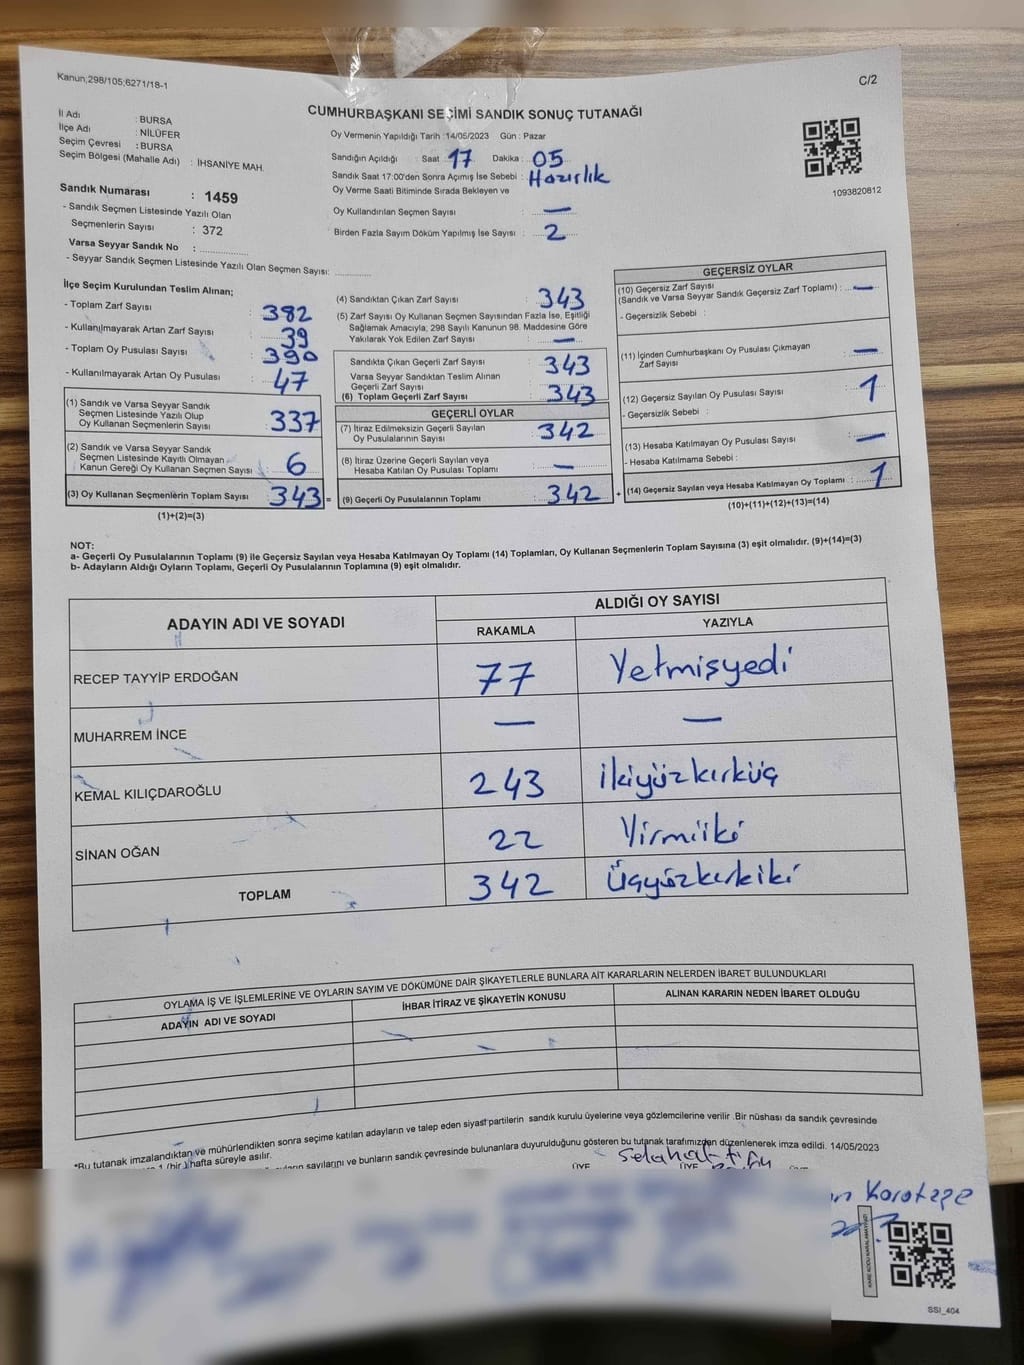 Kanun;298/105;6271/18-1
C/2
CUMHURBAŞKANI SEÇİMİ SANDIK SONUÇ TUTANAĞI
İl Adı : BURSA
İlçe Adı : NİLÜFER
Seçim Çevresi : BURSA
Seçim Bölgesi (Mahalle Adı) : İHSANİYE MAH.
Sandık Numarası : 1459
- Sandık Seçmen Listesinde Yazılı Olan
Seçmenlerin Sayısı : 372
Varsa Seyyar Sandık No :
- Seyyar Sandık Seçmen Listesinde Yazılı Olan Seçmen Sayısı:
Oy Vermenin Yapıldığı Tarih :14/05/2023 Gün : Pazar
Sandığın Açıldığı Saat : 17 Dakika : 05
Sandık Saat 17:00'den Sonra Açımış İse Sebebi : Hazırlık
Oy Verme Saati Bitiminde Sırada Bekleyen ve
Oy Kullandırılan Seçmen Sayısı : —
Birden Fazla Sayım Döküm Yapılmış İse Sayısı : 2
1093820812
İlçe Seçim Kurulundan Teslim Alınan;
- Toplam Zarf Sayısı : 382
- Kullanılmayarak Artan Zarf Sayısı : 39
- Toplam Oy Pusulası Sayısı : 390
- Kullanılmayarak Artan Oy Pusulası : 47
(1) Sandık ve Varsa Seyyar Sandık
Seçmen Listesinde Yazılı Olup
Oy Kullanan Seçmenlerin Sayısı : 337
(2) Sandık ve Varsa Seyyar Sandık
Seçmen Listesinde Kayıtlı Olmayan
Kanun Gereği Oy Kullanan Seçmen Sayısı : 6
(3) Oy Kullanan Seçmenlerin Toplam Sayısı : 343 =
(1)+(2)=(3)
(4) Sandıktan Çıkan Zarf Sayısı : 343
(5) Zarf Sayısı Oy Kullanan Seçmen Sayısından Fazla İse, Eşitliği
Sağlamak Amacıyla; 298 Sayılı Kanunun 98. Maddesine Göre
Yakılarak Yok Edilen Zarf Sayısı : —
Sandıkta Çıkan Geçerli Zarf Sayısı : 343
Varsa Seyyar Sandıktan Teslim Alınan
Geçerli Zarf Sayısı
(6) Toplam Geçerli Zarf Sayısı : 343
GEÇERLİ OYLAR
(7) İtiraz Edilmeksizin Geçerli Sayılan
Oy Pusulalarının Sayısı : 342
(8) İtiraz Üzerine Geçerli Sayılan veya
Hesaba Katılan Oy Pusulası Toplamı : —
(9) Geçerli Oy Pusulalarının Toplamı : 342 +
GEÇERSİZ OYLAR
(10) Geçersiz Zarf Sayısı
(Sandık ve Varsa Seyyar Sandık Geçersiz Zarf Toplamı) : —
- Geçersizlik Sebebi :
(11) İçinden Cumhurbaşkanı Oy Pusulası Çıkmayan
Zarf Sayısı : —
(12) Geçersiz Sayılan Oy Pusulası Sayısı : 1
- Geçersizlik Sebebi :
(13) Hesaba Katılmayan Oy Pusulası Sayısı : —
- Hesaba Katılmama Sebebi :
(14) Geçersiz Sayılan veya Hesaba Katılmayan Oy Toplamı : 1
(10)+(11)+(12)+(13)=(14)
NOT:
a- Geçerli Oy Pusulalarının Toplamı (9) ile Geçersiz Sayılan veya Hesaba Katılmayan Oy Toplamı (14) Toplamları, Oy Kullanan Seçmenlerin Toplam Sayısına (3) eşit olmalıdır. (9)+(14)=(3)
b- Adayların Aldığı Oyların Toplamı, Geçerli Oy Pusulalarının Toplamına (9) eşit olmalıdır.
ADAYIN ADI VE SOYADI
ALDIĞI OY SAYISI
RAKAMLA YAZIYLA
RECEP TAYYİP ERDOĞAN 77 Yetmişyedi
MUHARREM İNCE — —
KEMAL KILIÇDAROĞLU 243 İkiyüzkırküç
SİNAN OĞAN 22 Yirmiiki
TOPLAM 342 Üçyüzkırkiki
OYLAMA İŞ VE İŞLEMLERİNE VE OYLARIN SAYIM VE DÖKÜMÜNE DAİR ŞİKAYETLERLE BUNLARA AİT KARARLARIN NELERDEN İBARET BULUNDUKLARI
ADAYIN ADI VE SOYADI İHBAR İTİRAZ VE ŞİKAYETİN KONUSU ALINAN KARARIN NEDEN İBARET OLDUĞU
*Bu tutanak imzalandıktan ve mühürlendikten sonra seçime katılan adayların ve talep eden siyasi partilerin sandık kurulu üyelerine veya gözlemcilerine verilir .Bir nüshası da sandık çevresinde
1 (bir) hafta süreyle asılır.
sayılarını ve bunların sandık çevresinde bulunanlara duyurulduğunu gösteren bu tutanak tarafımızdan düzenlenerek imza edildi. 14/05/2023
Selahattin
ÜYE ÜYE
Karatepe
SSİ_404